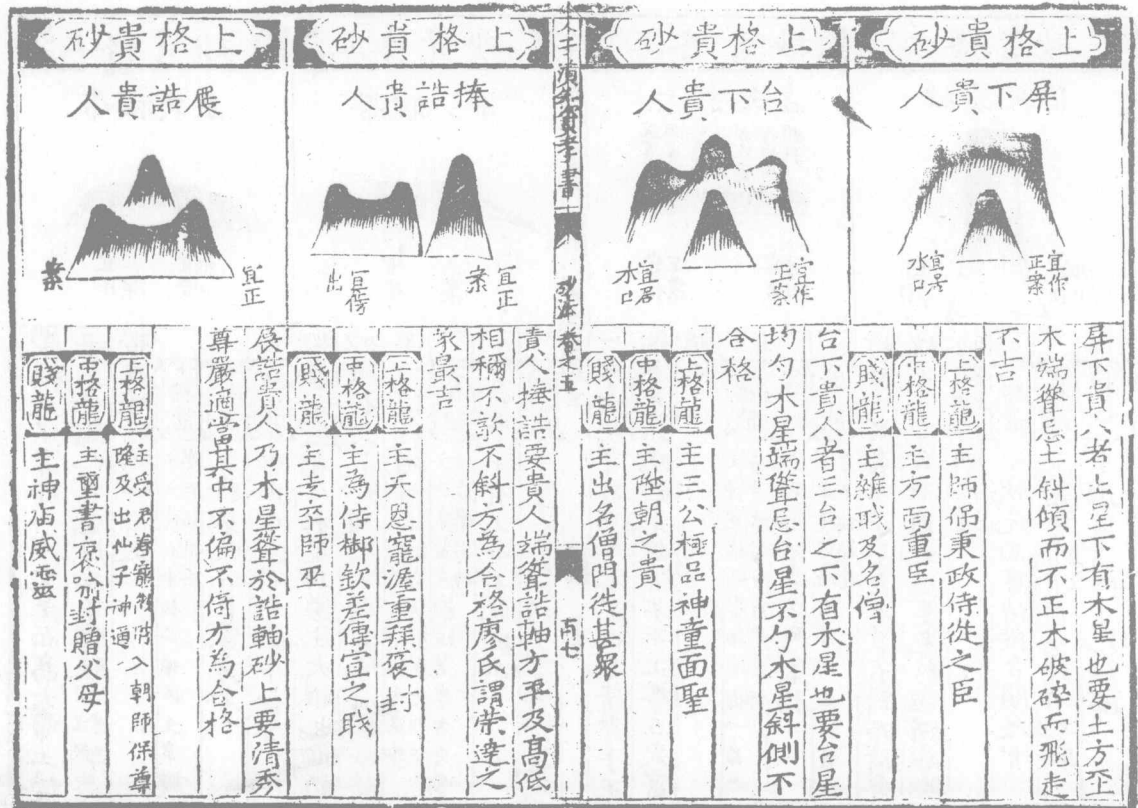 上格貴砂
屏下貴人
宜作
正案
宜居
水口
屏下貴人者土星下有木星也要土方平
木端聳忌土斜傾而不正木破碎而飛走
不吉
上格龍 主師保秉政侍從之臣
中格龍 主方面重臣
賤龍 主雜職及名僧
上格貴砂
台下貴人
宜作
正案
宜居
水口
台下貴人者三台之下有木星也要台星
均勻木星端聳忌台星不勻木星斜側不
合格
上格龍 主三公極品神童面聖
中格龍 主陞朝之貴
賤龍 主出名僧門徒甚眾
人子須知資孝書
砂法 卷之五
七
上格貴砂
捧誥貴人
宜正
案
宜傍
出
貴人捧誥要貴人端聳誥軸方平及高低
相稱不欹不斜方為合格廖氏謂榮達之
家最吉
上格龍 主天恩寵渥重拜褒封
中格龍 主為侍御欽差傳宣之職
賤龍 主走卒師巫
上格貴砂
展誥貴人
宜正
案
展誥貴人乃木星聳於誥軸砂上要清秀
尊嚴適當其中不偏不倚方為合格
上格龍 主受君眷寵入朝師保尊
隆及出仙子神通
中格龍 主璽書褒封贈父母
賤龍 主神廟威靈